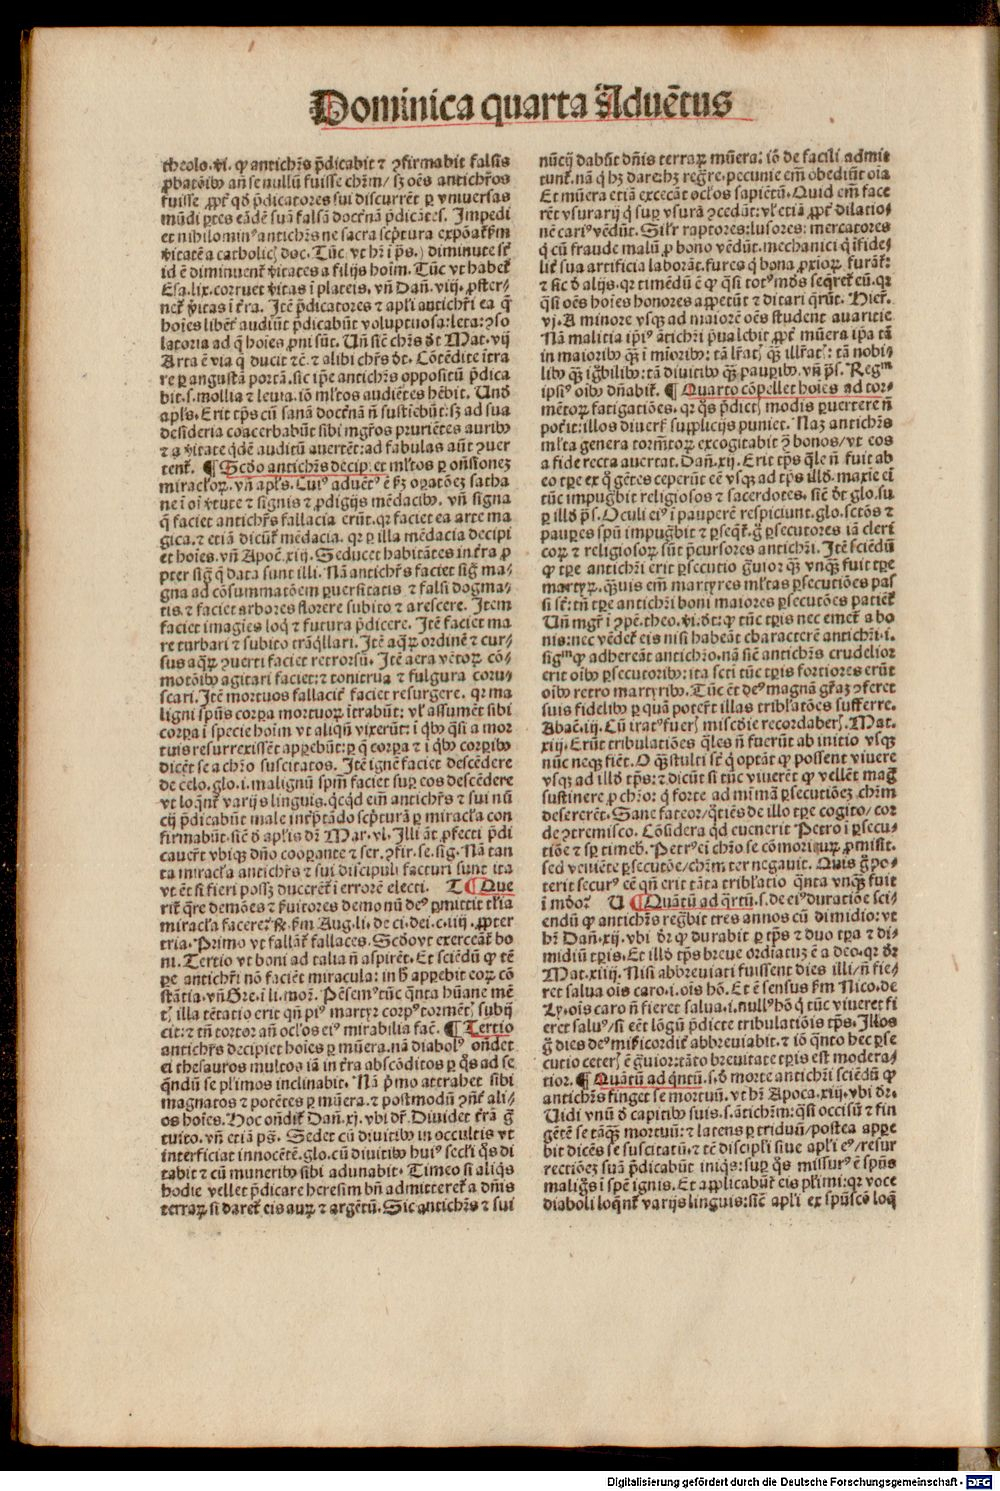 Dominica quarta Aduētus
theolo. vi. ꝙ antichr̄s p̄dicabit ⁊ ꝯfirmabit falsis
ꝓbatōib᷒ an̄ se nullū fuisse chr̄m / sꝫ oēs antichr̄os
fuisse ꝓpt̄ qd̄ p̄dicatores sui discurrēt ꝑ vniuersas
mūdi ꝑtes eādē suā falsā doctr̄nā p̄dicātes. Impedi
et nihilomin᷒ antichr̄s ne sacra scp̄tura expōat̄ k̄m
v̄itatē a catholicꝭ doc. Tūc vt hr̄ i p̄s. diminute st̄
id ē diminuent̄ v̄itates a filijs hoīm. Tūc vt habet̄
Esa. lix. corruet v̄itas ī plateis. vn̄ Dan̄. viij. ꝓster⸗
net̄ v̄itas ī t̄ra. Itē p̄dicatores ⁊ apl̄i antichr̄i ea q̄
hoīes libēt̄ audiūt p̄dicabūt voluptuosa: leta: ꝯso
latoria ad q̄ hoīes ꝓni sūt. Un̄ sic̄ chr̄s d̄t Mat. vij
Arta ē via q̄ ducit ⁊c̄. ⁊ alibi chr̄s d̄t. Cōtēdite ītra
re ꝑ angustā portā. sic ip̄e antichr̄s oppositū p̄dica
bit. s. mollia ⁊ leuia. iō ml̄tos audiētes hēbit. Unð
apl̄s. Erit tp̄s cū sanā doctr̄nā n̄ sustiēbūt: sꝫ ad sua
desideria coacerbabūt sibi mgr̄os pruriētes aurib᷒
⁊ a v̄itate q̄dē auditū auertēt: ad fabulas aūt ꝯuer
tent̄. ¶ Scd̄o antichr̄s decip: et ml̄tos ꝑ on̄sioneꝫ
miracl̄oꝝ. vn̄ apl̄s. Cui᷒ aduēt᷒ ē k̄ꝫ oꝑatōeꝫ satha
ne ī oī v̄tute ⁊ signis ⁊ ꝓdigijs mēdacib᷒. vn̄ signa
q̄ faciet antichr̄s fallacia erūt. qꝛ faciet ea arte ma
gica. ⁊ etiā dicūt̄ mēdacia. qꝛ ꝑ illa mēdacia decipi
et hoīes. vn̄ Apoc̄. xiij. Seducet habitātes in t̄ra ꝓ
pter siḡ q̄ data sunt illi. Nā antichr̄s faciet siḡ ma⸗
gna ad cōsummatōem ꝑuersitatis ⁊ falsi dogma⸗
tis. ⁊ faciet arbores florere subito ⁊ arescere. Item
faciet imagīes loq̄ ⁊ futura p̄dicere. Itē faciet ma
re turbari ⁊ subito trāq̄llari. Itē aqꝝ ordinē ⁊ cur⸗
sus aqꝝ ꝯuerti faciet retrorsū. Itē aera vētoꝝ cō⸗
motōib᷒ agitari faciet: ⁊ tonitrua ⁊ fulgura corus⸗
scari. Itē mortuos fallacit̄ faciet resurgere. qꝛ ma
ligni sp̄us corꝑa mortuoꝝ ītrabūt: vl̄ assumēt sibi
corꝑa ī specie hoīm vt aliqn̄ vixerūt: ī qb᷒ qsi a mor
tuis resurrexissēt apꝑebūt: ꝑ q̄ corꝑa ⁊ ī qb᷒ corꝑib᷒
dicēt se a chr̄o suscitatos. Itē ignē faciet descēdere
de celo. glo. i. malignū spm̄ faciet suꝑ eos descēdere
vt loqnt̄ varijs linguis. qcqd em̄ antichr̄s ⁊ sui nū
cij p̄dicabūt male int̄p̄tādo scp̄turā ꝑ miracl̄a con
firmabūt. sic̄ d̄ apl̄is dr̄ Mar. vl. Illi āt ꝓfecti p̄di
cauer̄t vbiqꝫ dn̄o cooꝑante ⁊ ser. ꝯfir. se. sig. Nā tan
ta miracl̄a antichr̄s ⁊ sui discipuli facturi sunt ita
vt ēt si fieri possꝫ ducerēt̄ ī errorē electi. T ¶ Que
rit̄ q̄re demōes ⁊ k̄uitores demonū de᷒ ꝑmittit tl̄ia
miracl̄a facere? ꝶ. k̄m Aug. li. de ci. dei. c. iiij. ꝓpter
tria. Primo vt fallāt̄ fallaces. Scd̄o vt exerceāt̄ bo
ni. Tertio vt boni ad talia n̄ aspirēt. Et sciēdū ꝙ tē
ꝑe antichr̄i nō faciēt miracula: in h̄ apꝑebit eoꝝ cō
stātia. vn̄ Gre. ī li. mor̄. Pēsem᷒ tūc qnta hūane mē
tꝭ illa tētatio erit qn̄ pi᷒ martyr corp᷒ tormētꝭ subij
cit: ⁊ tn̄ tortor an̄ ocl̄os ei᷒ mirabilia fac̄. ¶ Tertio
antichr̄s decipiet hoīes ꝑ mūera. nā diabol᷒ on̄det
ei thesauros multos iā in t̄ra abscōditos ꝑ qs ad se
qndū se pl̄imos inclinabit. Nā p̄mo attrahet sibi
magnatos ⁊ potētes ꝑ mūera. ⁊ postmodū ꝯn̄t̄ ali⸗
os hoīes. Hoc on̄dit̄ Dan̄. xj. vbi dr̄. Diuidet t̄rā ḡ
tuito. vn̄ etiā ps̄. Sedet cū diuitib᷒ in occultis vt
interficiat innocētē. glo. cū diuitib᷒ hui᷒ secl̄i qs di
tabit ⁊ cū munerib᷒ sibi adunabit. Timeo si aliqs
hodie vellet p̄dicare heresim bn̄ admitteret̄ a dn̄is
terraꝝ si daret̄ eis auꝝ ⁊ argētū. Sic antichr̄s ⁊ sui
nūcij dabūt dn̄is terraꝝ mūera: iō de facili admit
tunt̄. nā q̄ hꝫ dare: hꝫ regr̄e. pecunie em̄ obediūt oīa
Et mūera etiā excecāt ocl̄os sapiētū. Quid em̄ face
rēt vsurarij q̄ suꝑ vsurā ꝯcedāt: vl̄ etiā ꝓpt̄ dilatio⸗
nē cari᷒ vēdūt. Sil̄r raptores: lusores: mercatores
q̄ cū fraude malū ꝓ bono vēdūt. mechanici q̄ īfide⸗
lit̄ sua artificia laborāt. fures q̄ bona ꝓxioꝝ furāt̄:
⁊ sic d̄ alijs. qꝛ timēdū ē ꝙ qsi tot᷒ mūd᷒ seq̄ret̄ eū. qꝛ
qsi oēs hoīes honores appetūt ⁊ ditari q̄rūt. Hier̄.
vj. A minore vsqꝫ ad maiorē oēs student auaritie
Nā malitia ip̄i᷒ ātichr̄i p̄ualebit ꝓpt̄ mūera ip̄a tā
in maiorib᷒ qꝫ̄ ī mīorib᷒: tā lr̄atꝭ qꝫ̄ illr̄atꝭ: tā nobi⸗
lib᷒ qꝫ̄ igb̄ilib᷒: tā diuitib᷒ qꝫ̄ pauꝑib᷒. vn̄ ps̄. Regm̄
ipsi᷒ oīb᷒ dn̄abit̄. ¶ Quarto cōpellet hoīes ad tor⸗
mētoꝝ fatigatiōes. qꝛ qs p̄dictꝭ modis ꝑuertere n̄
pot̄it: illos diuers̄ supplicijs puniet. Naꝫ antichr̄s
ml̄ta genera torm̄toꝝ excogitabit ꝯ bonos / vt eos
a fide recta auertat. Dan̄. xij. Erit tp̄s q̄le n̄ fuit ab
eo tꝑe ex q̄ gētes ceperūt eē vsqꝫ ad tp̄s illd̄. maxīe ei
tūc impugb̄it religiosos ⁊ sacerdotes. sic̄ d̄t glo. su
ꝑ illd̄ ps̄. Oculi ei᷒ ī pauperē respiciunt. glo. sctōs ⁊
pauꝑes spū impugb̄it ⁊ ꝑseqt̄. ḡ ꝑsecutores iā cleri
coꝝ ⁊ religiosoꝝ sūt p̄cursores antichr̄i. Itē sciēdū
ꝙ tꝑe antichr̄i erit ꝑsecutio ḡuior qꝫ̄ vnqꝫ̄ fuit tꝑe
martyꝝ. qꝫ̄uis em̄ martyres ml̄tas ꝑsecutiōes pas
si st̄: tn̄ tꝑe antichr̄i boni maiores ꝑsecutōes patiēt̄
Un̄ mgr̄ ī ꝯpē. theo. vi. d̄t: ꝙ tūc tꝑis nec emet̄ a bo
nis: nec vēdet̄ eis nisi habeāt characterē antichr̄i. i.
sigm̄ ꝙ adhereāt antichr̄o. nā sic̄ antichr̄s crudelior
erit oīb᷒ ꝑsecutorib᷒: ita scti tūc tꝑis fortiores erūt
oīb᷒ retro martyrib᷒. Tūc ēt de᷒ magnā gr̄aꝫ ꝯferet
suis fidelib᷒ ꝑ quā poter̄t illas tribl̄atōes sufferre.
Abac̄. iij. Cū irat᷒ fuerꝭ misc̄die recordaberꝭ. Mat.
xxiiij. Erūt tribulatiōes q̄les n̄ fuerūt ab initio vsqꝫ
nūc neqꝫ fiēt. O qꝫ̄ stulti st̄ q̄ optāt ꝙ possent viuere
vsqꝫ ad illd̄ tp̄s: ⁊ dicūt si tūc viuerēt ꝙ vellēt maḡ
sustinere ꝓ chr̄o: q̄ forte ad mīmā ꝑsecutiōeꝫ chr̄m
desererēt. Sane fateor / qtiēs de illo tꝑe cogito / cor
de ꝯtremisco. Cōsidera qd̄ euenerit Petro ī ꝑsecu⸗
tiōe ⁊ sꝑ timeb̄. Petr᷒ ei chr̄o se cōmoriturꝝ ꝓmisit.
sed veniētē ꝑsecutōe / chr̄m ter negauit. Quis ḡ po⸗
terit secur᷒ eē qn̄ erit tāta tribl̄atio qnta vnqꝫ̄ fuit
ī mūdo. U ¶ Quātū ad qrtū. s. de ei᷒ duratiōe sci⸗
endū ꝙ antichr̄s regb̄it tres annos cū dimidio: vt
hr̄ Dan̄. xij. vbi dr̄ ꝙ durabit ꝑ tp̄s ⁊ duo tꝑa ⁊ di⸗
midiū tꝑis. Et illd̄ tp̄s breue ordīatuꝫ ē a deo. qꝛ dr̄
Mat. xxiiij. Nisi abbreuiati fuissent dies illi / n̄ fie⸗
ret salua oīs caro. i. oīs hō. Et ē sensus k̄m Nico. de
Ly. oīs caro n̄ fieret salua. i. null᷒ hō q̄ tūc viueret fi
eret salu᷒ / si eēt lōgū p̄dicte tribulatiōis tp̄s. Illos
ḡ dies de᷒ mis̄icordit̄ abbreuiabit. ⁊ iō qnto hec ꝑse
cutio ceterꝭ ē ḡuior: tāto breuitate tꝑis est modera⸗
tior. ¶ Quātū ad qntū. s. d̄ morte antichr̄i sciēdū ꝙ
antichr̄s finget se mortuū. vt hr̄ Apoca. xiij. vbi dr̄.
Uidi vnū d̄ capitib᷒ suis. s. ātichr̄m: qsi occisū ⁊ fin
gētē se tāqꝫ̄ mortuū: ⁊ latens ꝑ triduū / postea apꝑe
bit dicēs se suscitatū. ⁊ tē discipl̄i siue apl̄i e᷒ / resur
rectiōeꝫ suā p̄dicabūt iniqs: suꝑ qs missur᷒ ē sp̄us
malign᷒ ī spē ignis. Et applicabūt̄ eis pl̄imi: qꝛ voce
diaboli loqnt̄ varijs linguis: sic̄ apl̄i ex spūscō loq̄
Digitalisierung gefördert durch die Deutsche Forschungsgemeinschaft - DFG